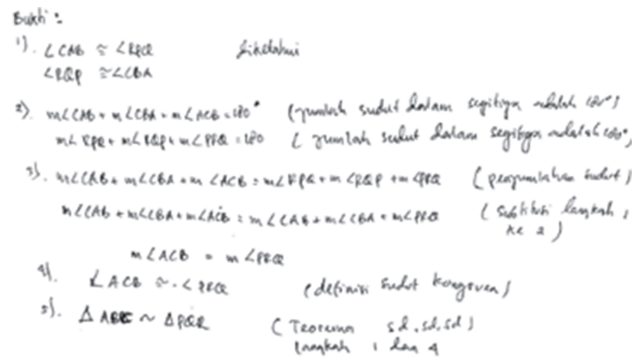 Bukti :
1). ∠CAB ≅ ∠RPQ diketahui
∠RQP ≅ ∠CBA
2). m∠CAB + m∠CBA + m∠ACB = 180° (jumlah sudut dalam segitiga adalah 180°)
m∠RPQ + m∠RQP + m∠PRQ = 180 (jumlah sudut dalam segitiga adalah 180°)
3). m∠CAB + m∠CBA + m∠ACB = m∠RPQ + m∠RQP + m∠PRQ (penjumlahan sudut)
m∠CAB + m∠CBA + m∠ACB = m∠CAB + m∠CBA + m∠PRQ (substitusi langkah 1
ke 2)
m∠ACB = m∠PRQ
4). ∠ACB ≅ ∠PRQ (definisi sudut kongruen)
5). △ABC ~ △PQR (Teorema sd, sd, sd)
langkah 1 dan 4